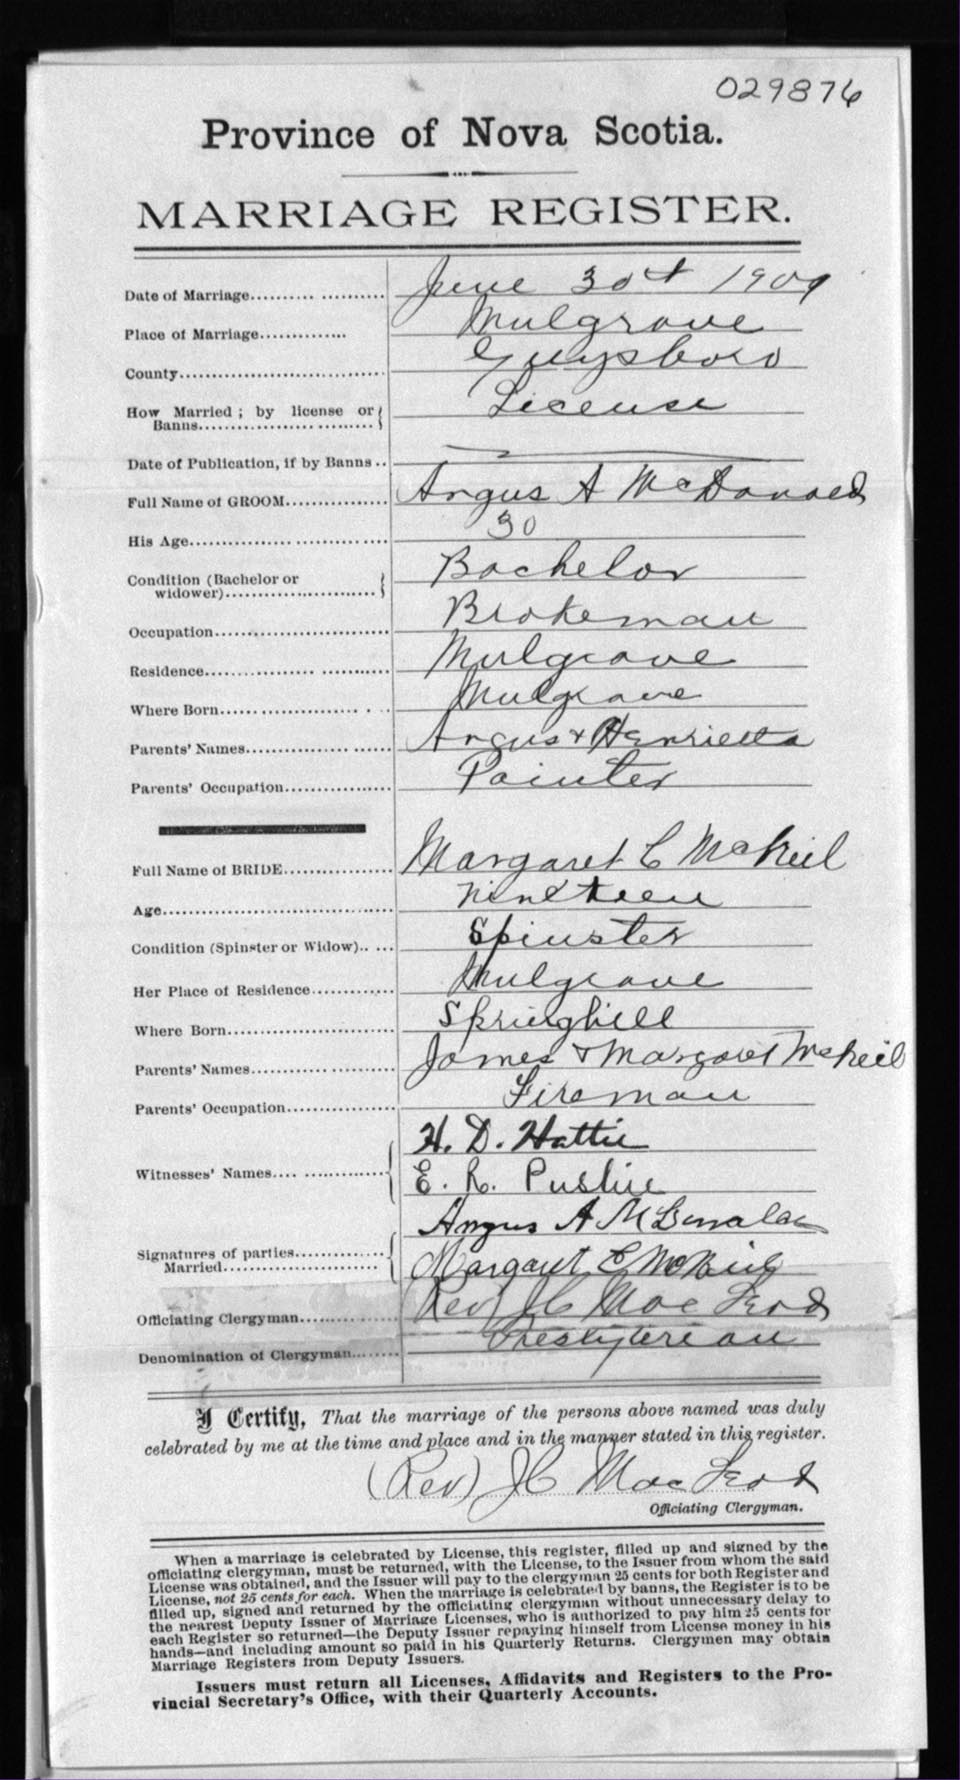 029876
Province of Nova Scotia.
MARRIAGE REGISTER.
Date of Marriage.................... June 30th 1909
Place of Marriage.............. Mulgrave
County.................................. Guysboro
How Married ; by license or Banns............................ License
Date of Publication, if by Banns ..
Full Name of GROOM................ Angus A McDonald
His Age.................................. 30
Condition (Bachelor or widower)............................ Bachelor
Occupation............................ Brakeman
Residence............................ Mulgrave
Where Born........................ Mulgrave
Parents' Names.................... Angus & Henrietta
Parents' Occupation................ Painter
Full Name of BRIDE................ Margaret C McNeil
Age.................................... Nineteen
Condition (Spinster or Widow).. ... Spinster
Her Place of Residence............ Mulgrave
Where Born........................ Springhill
Parents' Names.................... James & Margaret McNeil
Parents' Occupation................ Fireman
H. D. Hattie
Witnesses' Names.... ..............
E. L. Pushie
Angus A McDonald
Signatures of parties Married........................
Margaret C McNeil
Officiating Clergyman.............. (Rev) J C MacLeod
Denomination of Clergyman........ Presbyterean
I Certify, That the marriage of the persons above named was duly
celebrated by me at the time and place and in the manner stated in this register.
(Rev) J C MacLeod
Officiating Clergyman.
When a marriage is celebrated by License, this register, filled up and signed by the
officiating clergyman, must be returned, with the License, to the Issuer from whom the said
License was obtained, and the Issuer will pay to the clergyman 25 cents for both Register and
License, not 25 cents for each. When the marriage is celebrated by banns, the Register is to be
filled up, signed and returned by the officiating clergyman without unnecessary delay to
the nearest Deputy Issuer of Marriage Licenses, who is authorized to pay him 25 cents for
each Register so returned—the Deputy Issuer repaying himself from License money in his
hands—and including amount so paid in his Quarterly Returns. Clergymen may obtain
Marriage Registers from Deputy Issuers.
Issuers must return all Licenses, Affidavits and Registers to the Pro-
vincial Secretary's Office, with their Quarterly Accounts.